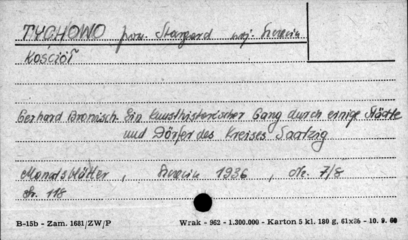 TYCHOWO pow. Stargard woj. Szczecin
Kościół
Gerhard Bronisch. Ein kunsthistorischer Gang durch einige Städte
und Dörfer des Kreises Saatzig
Monatsblätter, Szczecin 1936, Nr. 7/8
str. 118
B-15b - Zam. 1681/ZW/P Wrak - 962 - 1.300.000 - Karton 5 kl. 180 g, 61x86 - 10. 9. 60